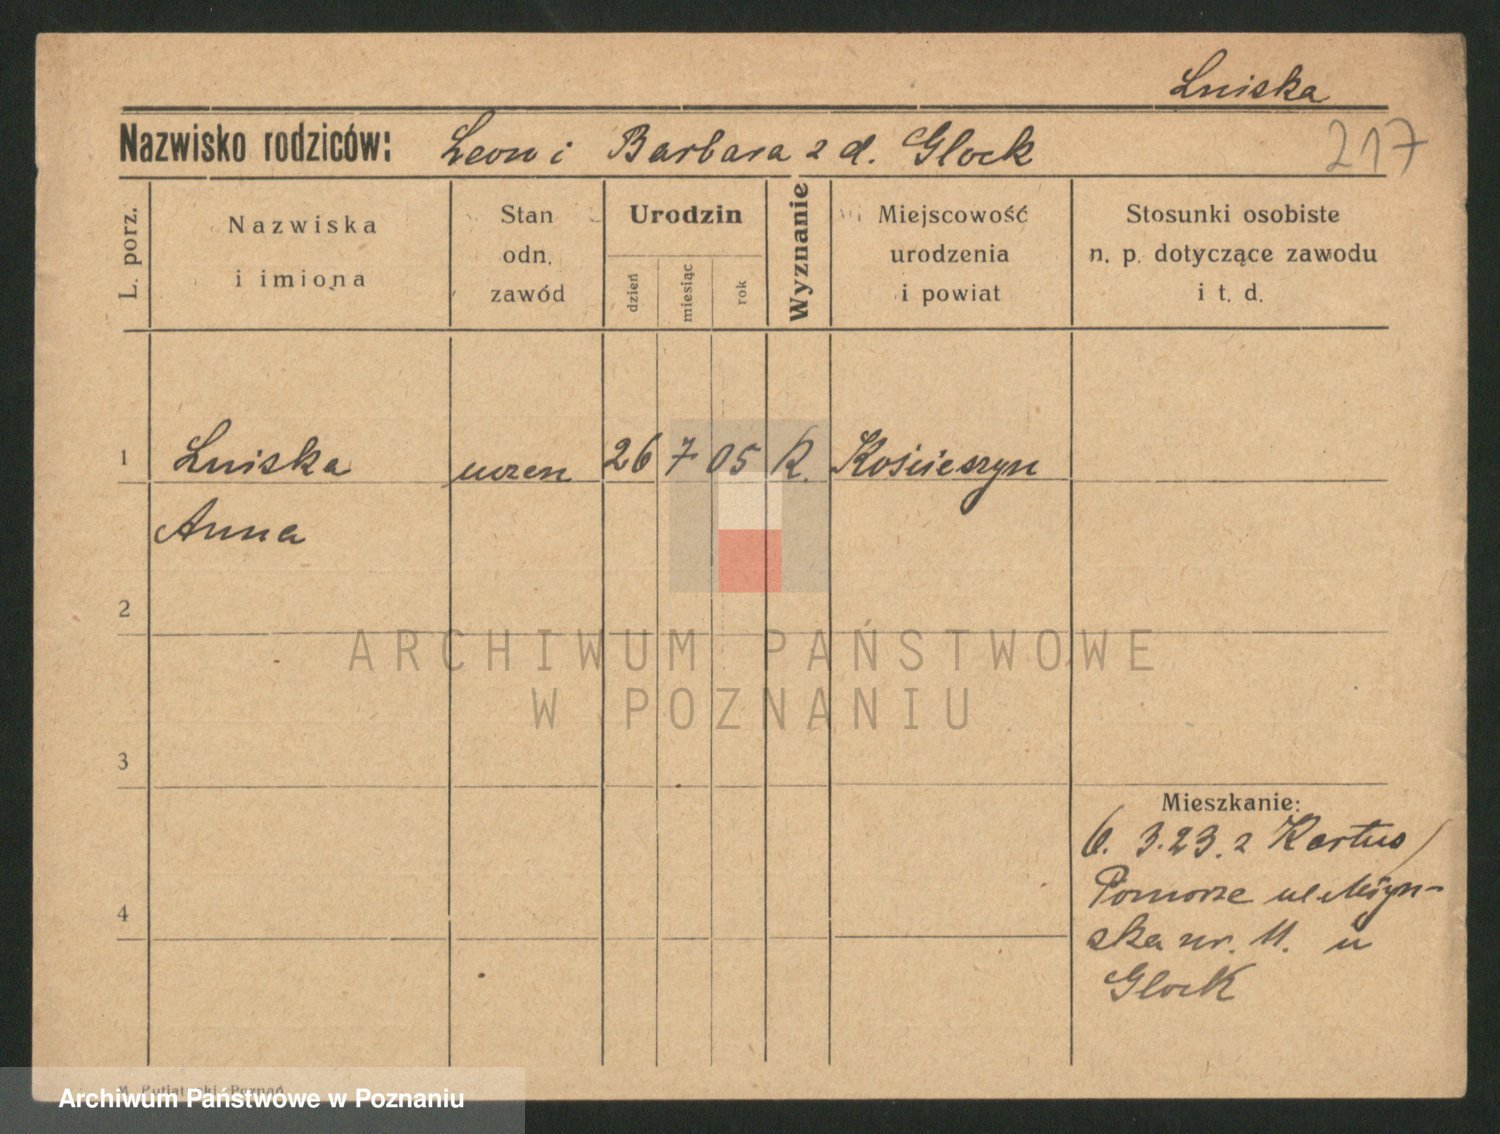 Lniska
Nazwisko rodziców: Leon i Barbara z d. Glock
217
L. porz.
Nazwiska
i imiona
Stan
odn.
zawód
Urodzin
dzień
miesiąc
rok
Wyznanie
Miejscowość
urodzenia
i powiat
Stosunki osobiste
n. p. dotyczące zawodu
i t. d.
1 Lniska uczen 26 7 05 K. Kościeszyn
Anna
2
ARCHIWUM PAŃSTWOWE
W POZNANIU
3
Mieszkanie:
6. 3.23. z Kartus
Pomorze ul. Młyn-
4
ska nr. 11. u
Glock
Poznań
Archiwum Państwowe w Poznaniu